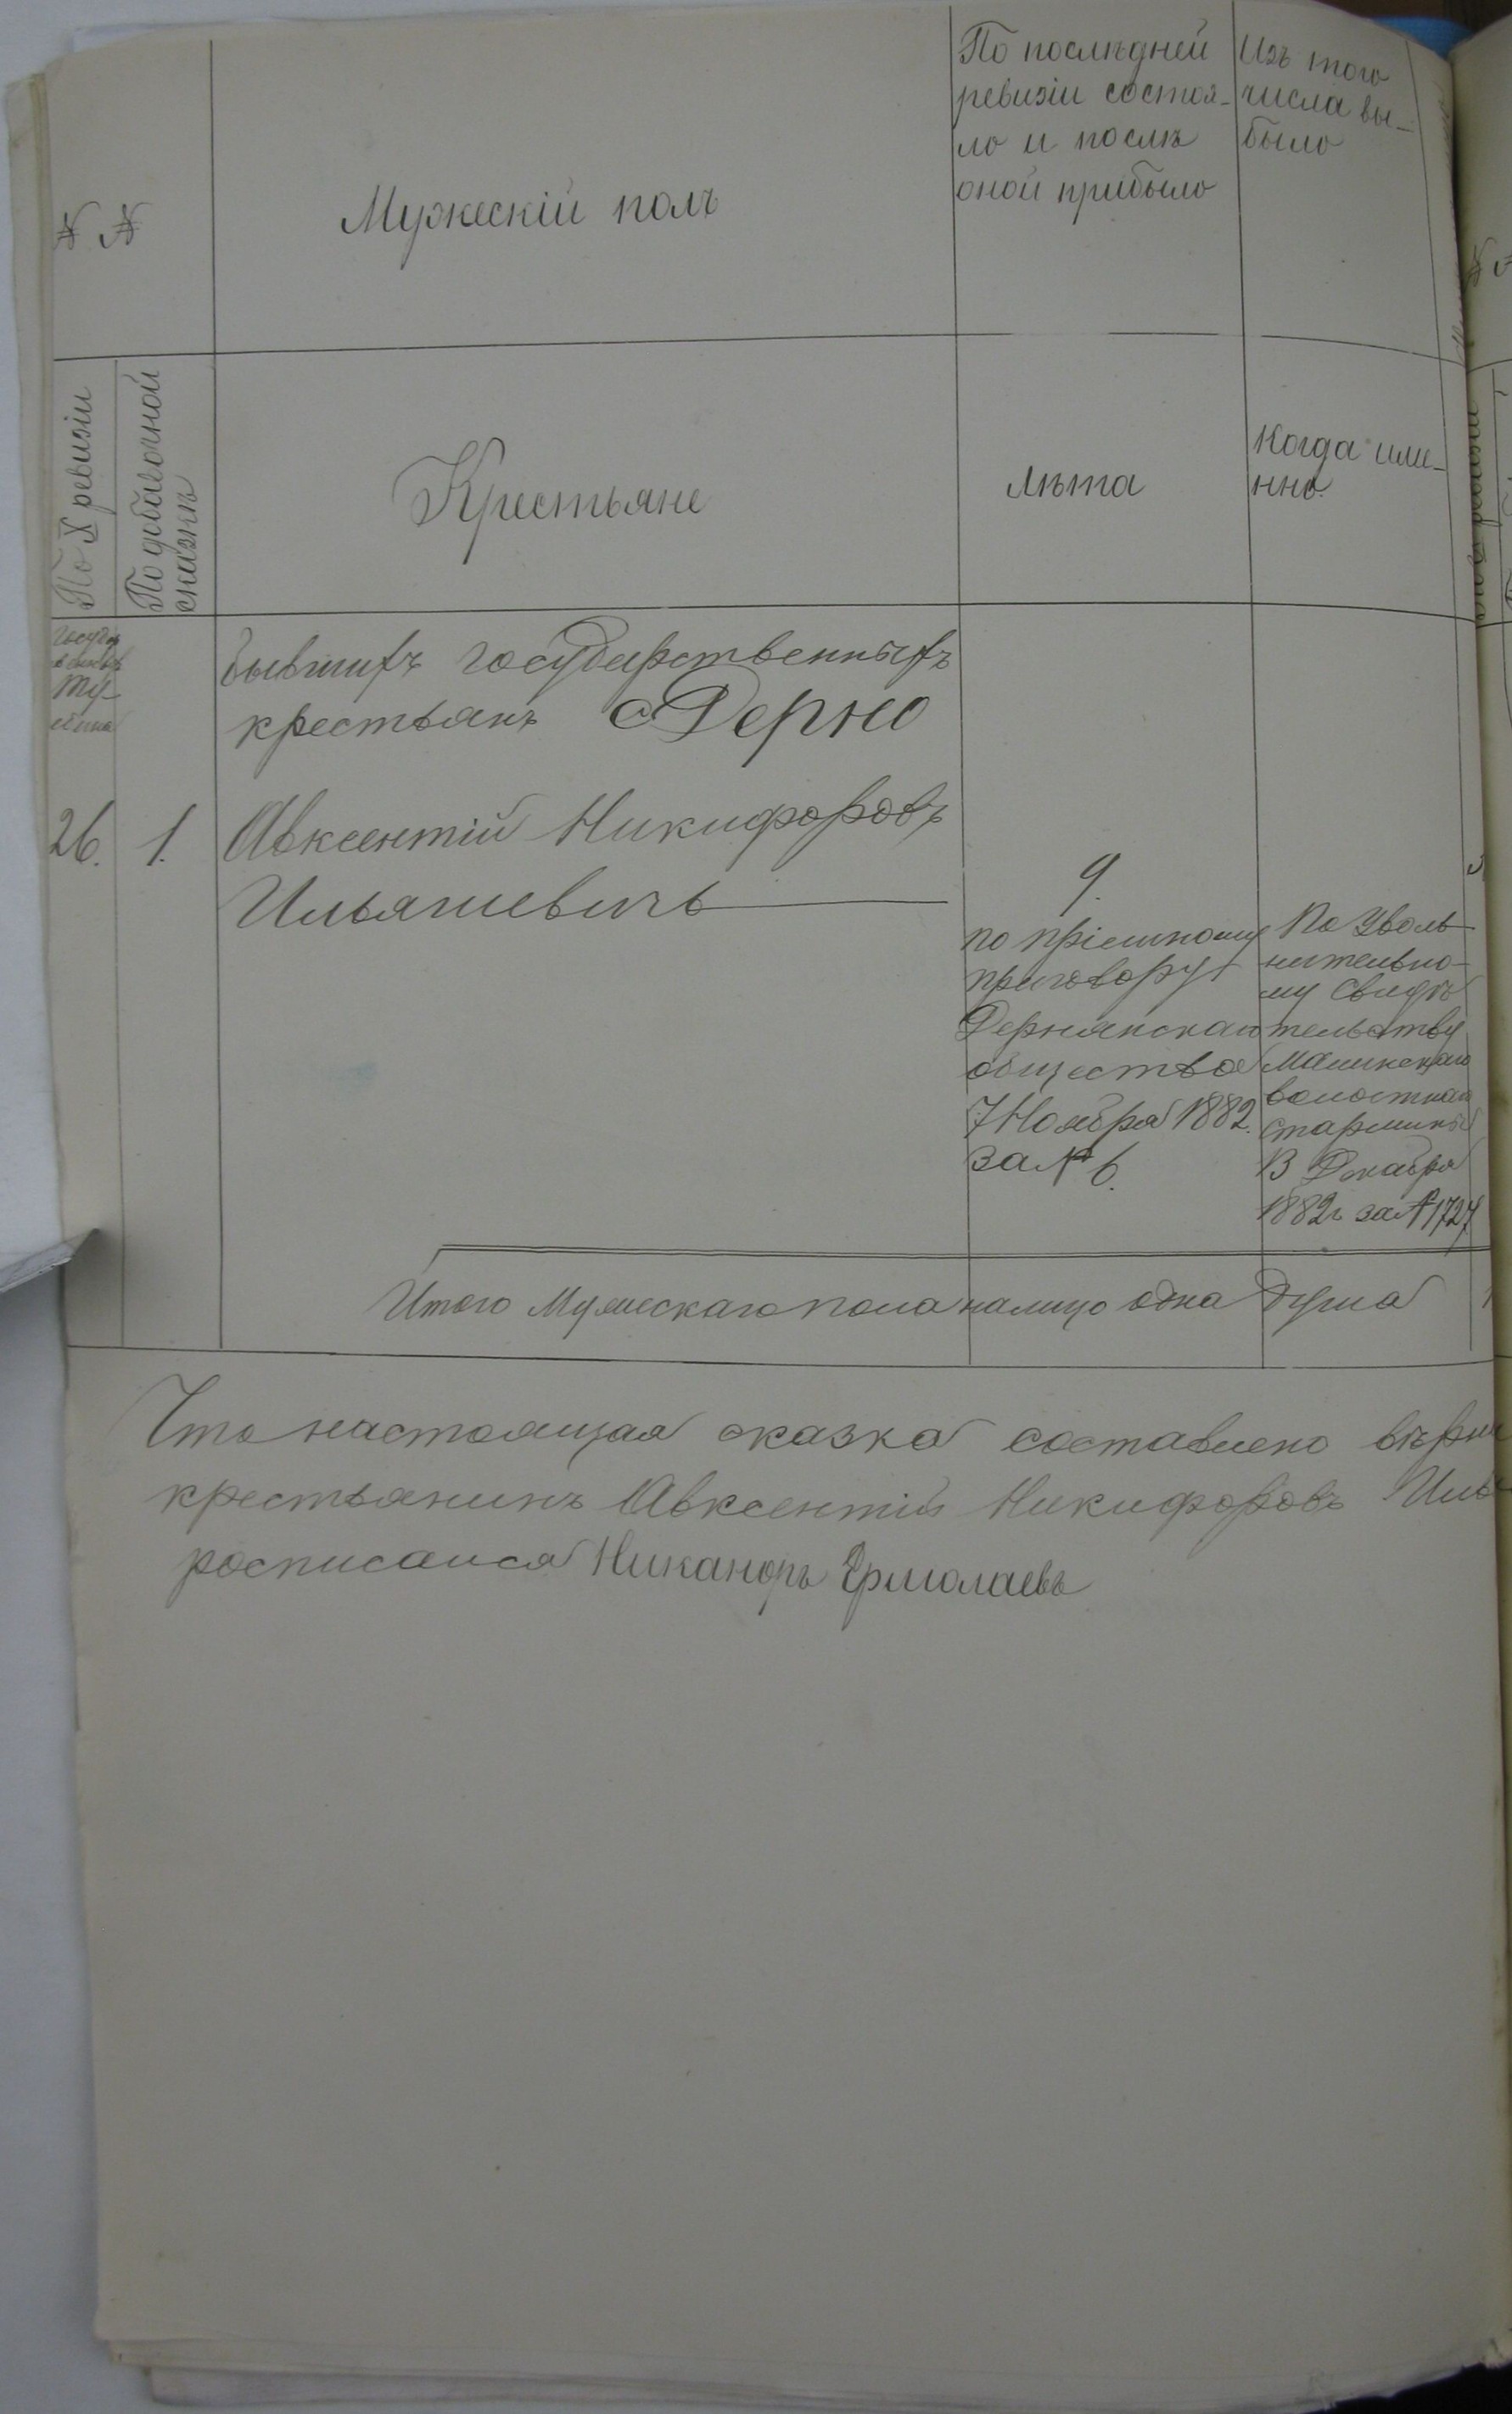 № №
Мужескій полъ
По послѣдней
ревизіи состоя-
ло и послѣ
оной прибыло
Изъ того
числа вы-
было
По X ревизіи
По добавочной
сказкѣ
Крестьяне
лѣта
Когда име-
нно.
бывшихъ государственныхъ
крестьянъ с Дерно
26. 1. Авксентій Никифоровъ
Ильяшевичъ
9.
по пріемному
приговору
Дернянскаго
общества
7 Ноября 1882.
за № 6.
По уволь-
нительно-
му свидѣ
тельству
волостнаго
старшины
13 Декабря
1882г за № 1727
Итого Мужескаго пола налицо одна душа
Что настоящая сказка составлено вѣрно
крестьянинъ Авксентій Никифоровъ Илья
росписался Никаноръ Ермолаевъ